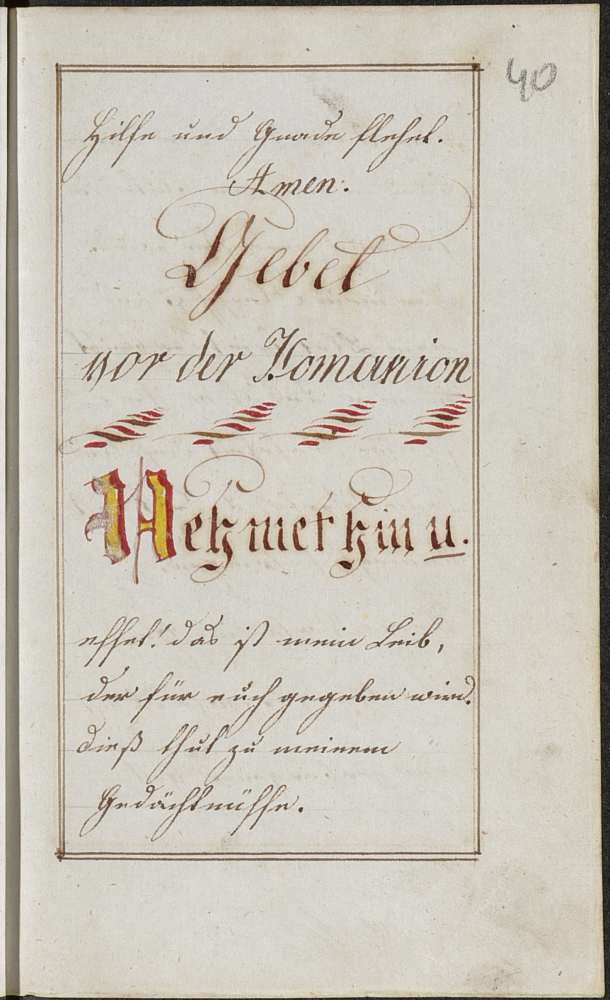 40
Hilfe und Gnade flehet.
Amen.
Gebet
vor der Komunion
Nehmet hin u.
esset! das ist mein Leib,
der für euch gegeben wird.
Dieß thut zu meinem
Gedächtnüsse.